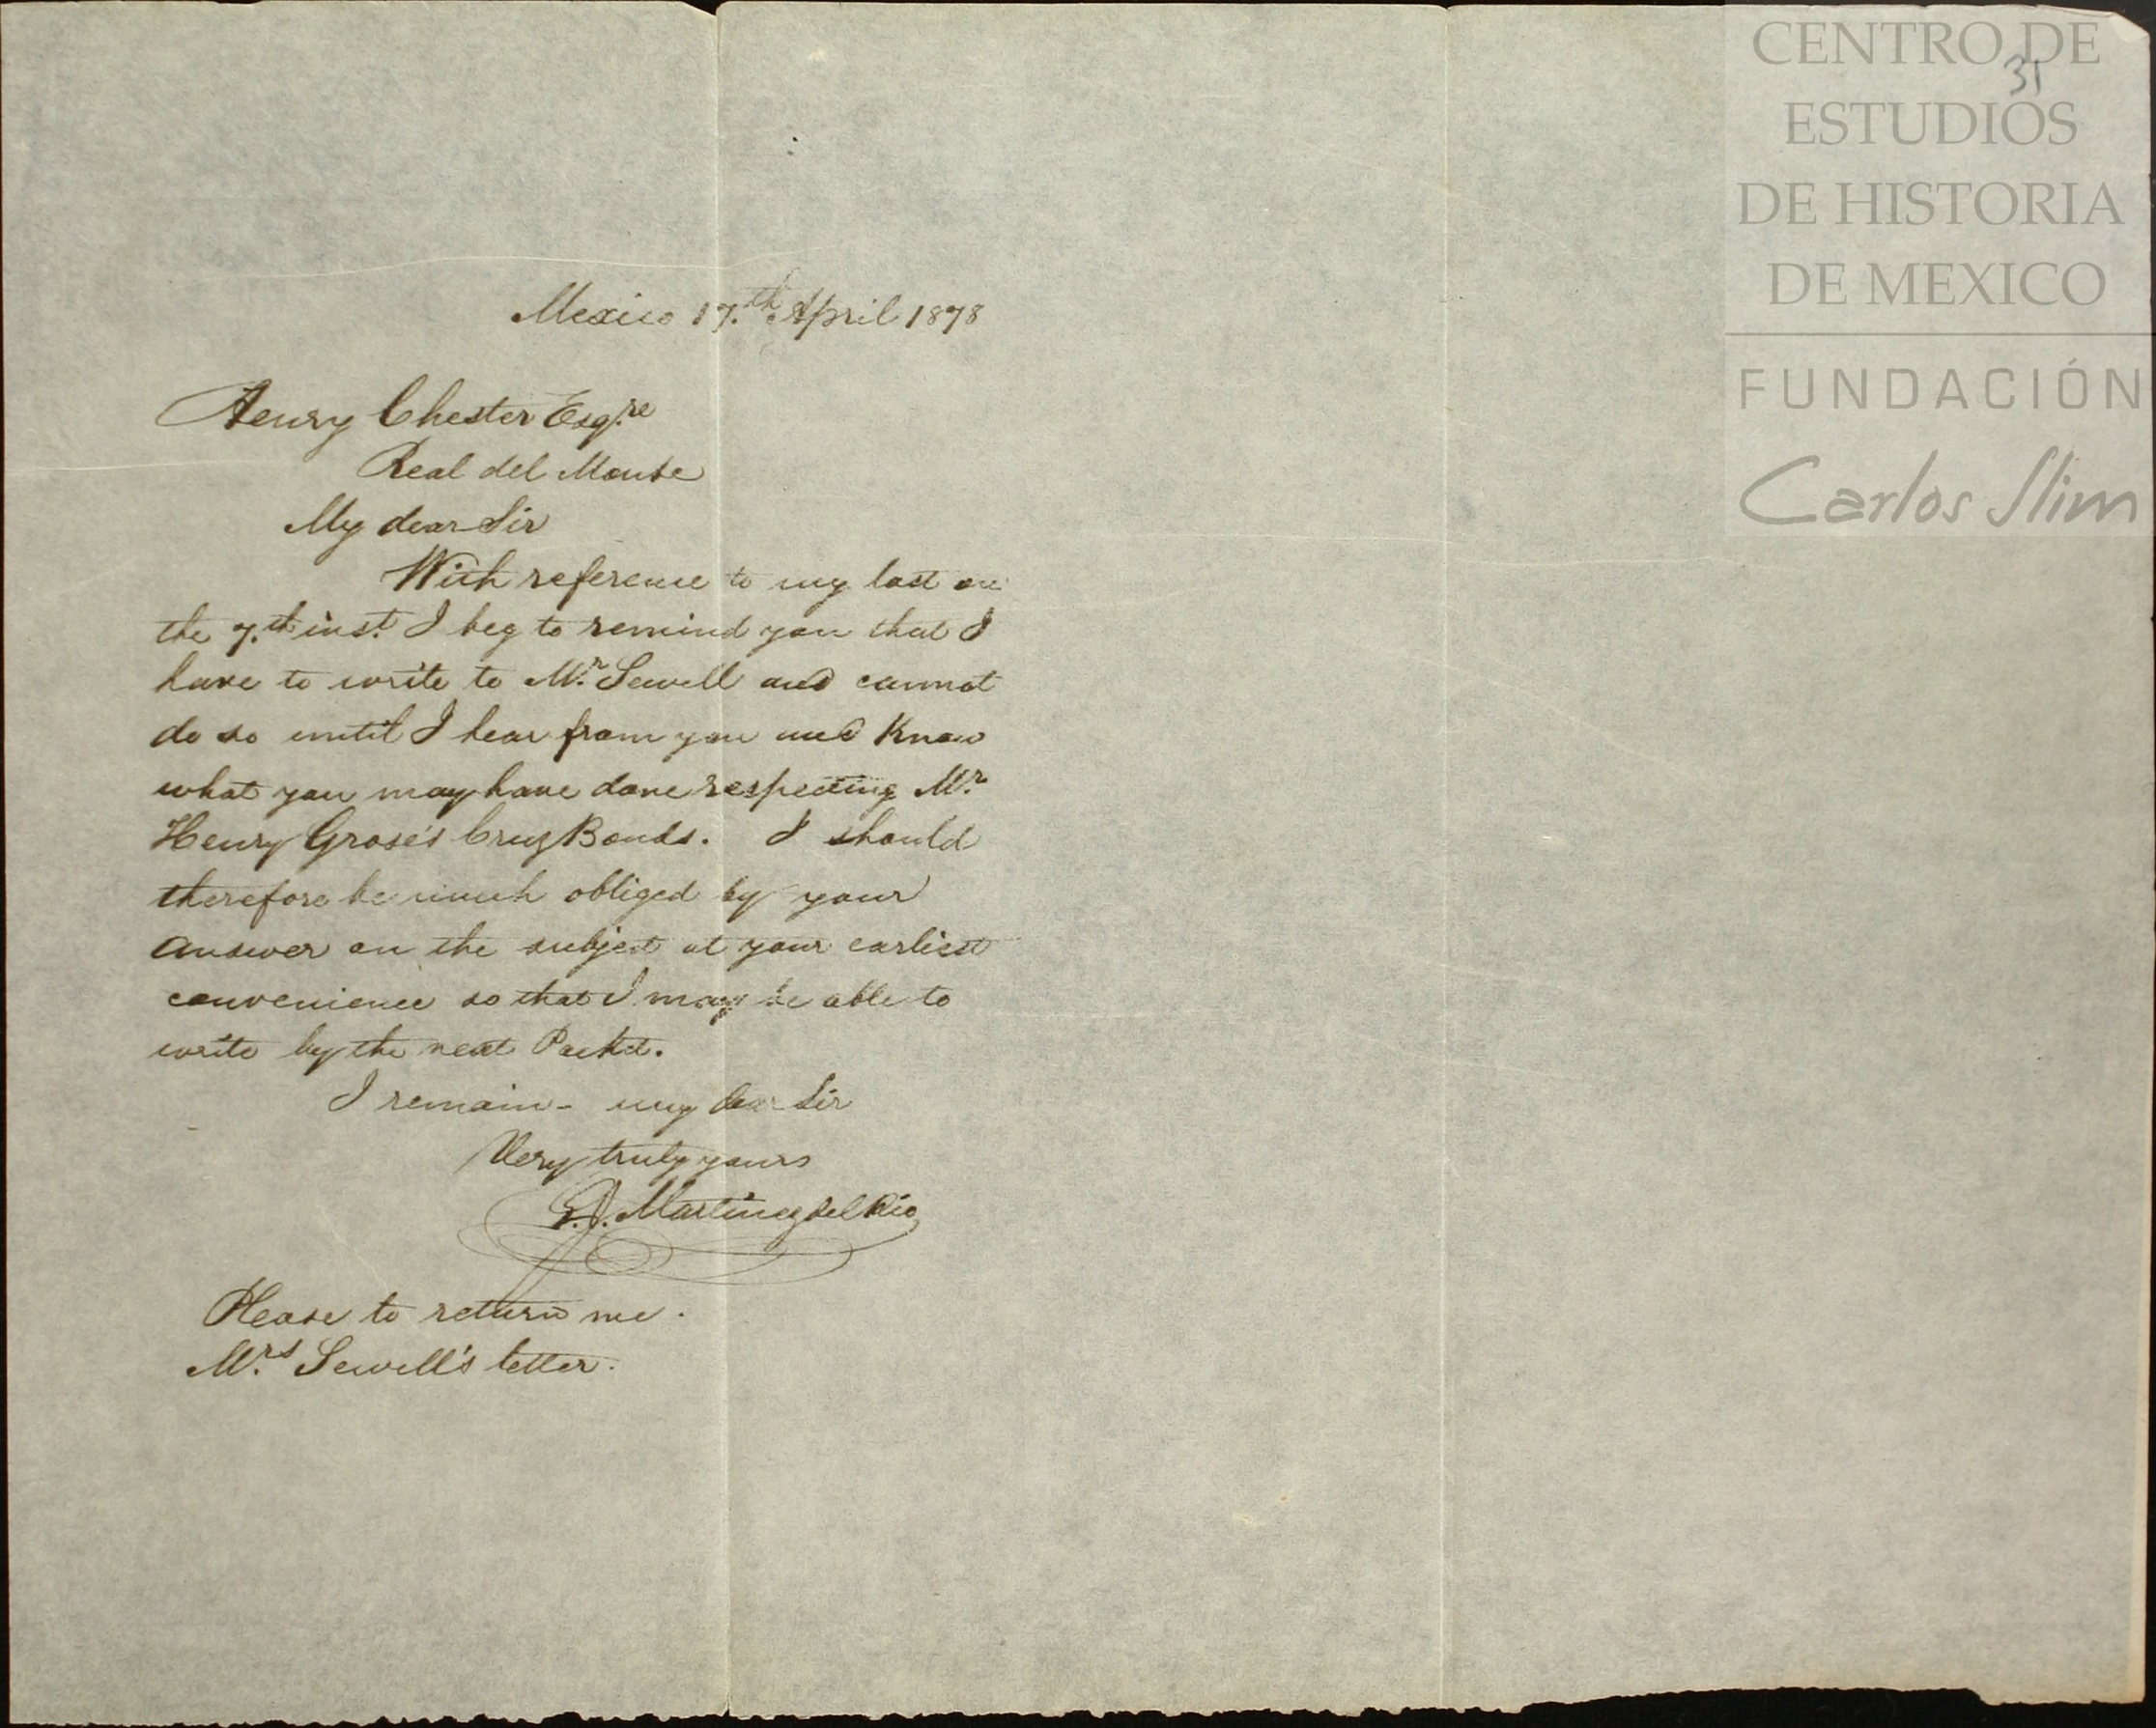 CENTRO DE
ESTUDIOS
DE HISTORIA
DE MEXICO
FUNDACIÓN
Carlos Slim
31
Mexico 17.th April 1878
Henry Chester Esq.re
Real del Monte
My dear Sir
With reference to my last on
the 7.th inst. I beg to remind you that I
have to write to Mr. Sewell and cannot
do so until I hear from you and Know
what you may have done respecting Mr.
Henry Grose's Cruz Bonds. I should
therefore be much obliged by your
answer on the subject at your earliest
convenience so that I may be able to
write by the next Packet.
I remain - my dear Sir
Very truly yours
Martinez del Rio
Please to return me.
Mrs. Sewell's letter.